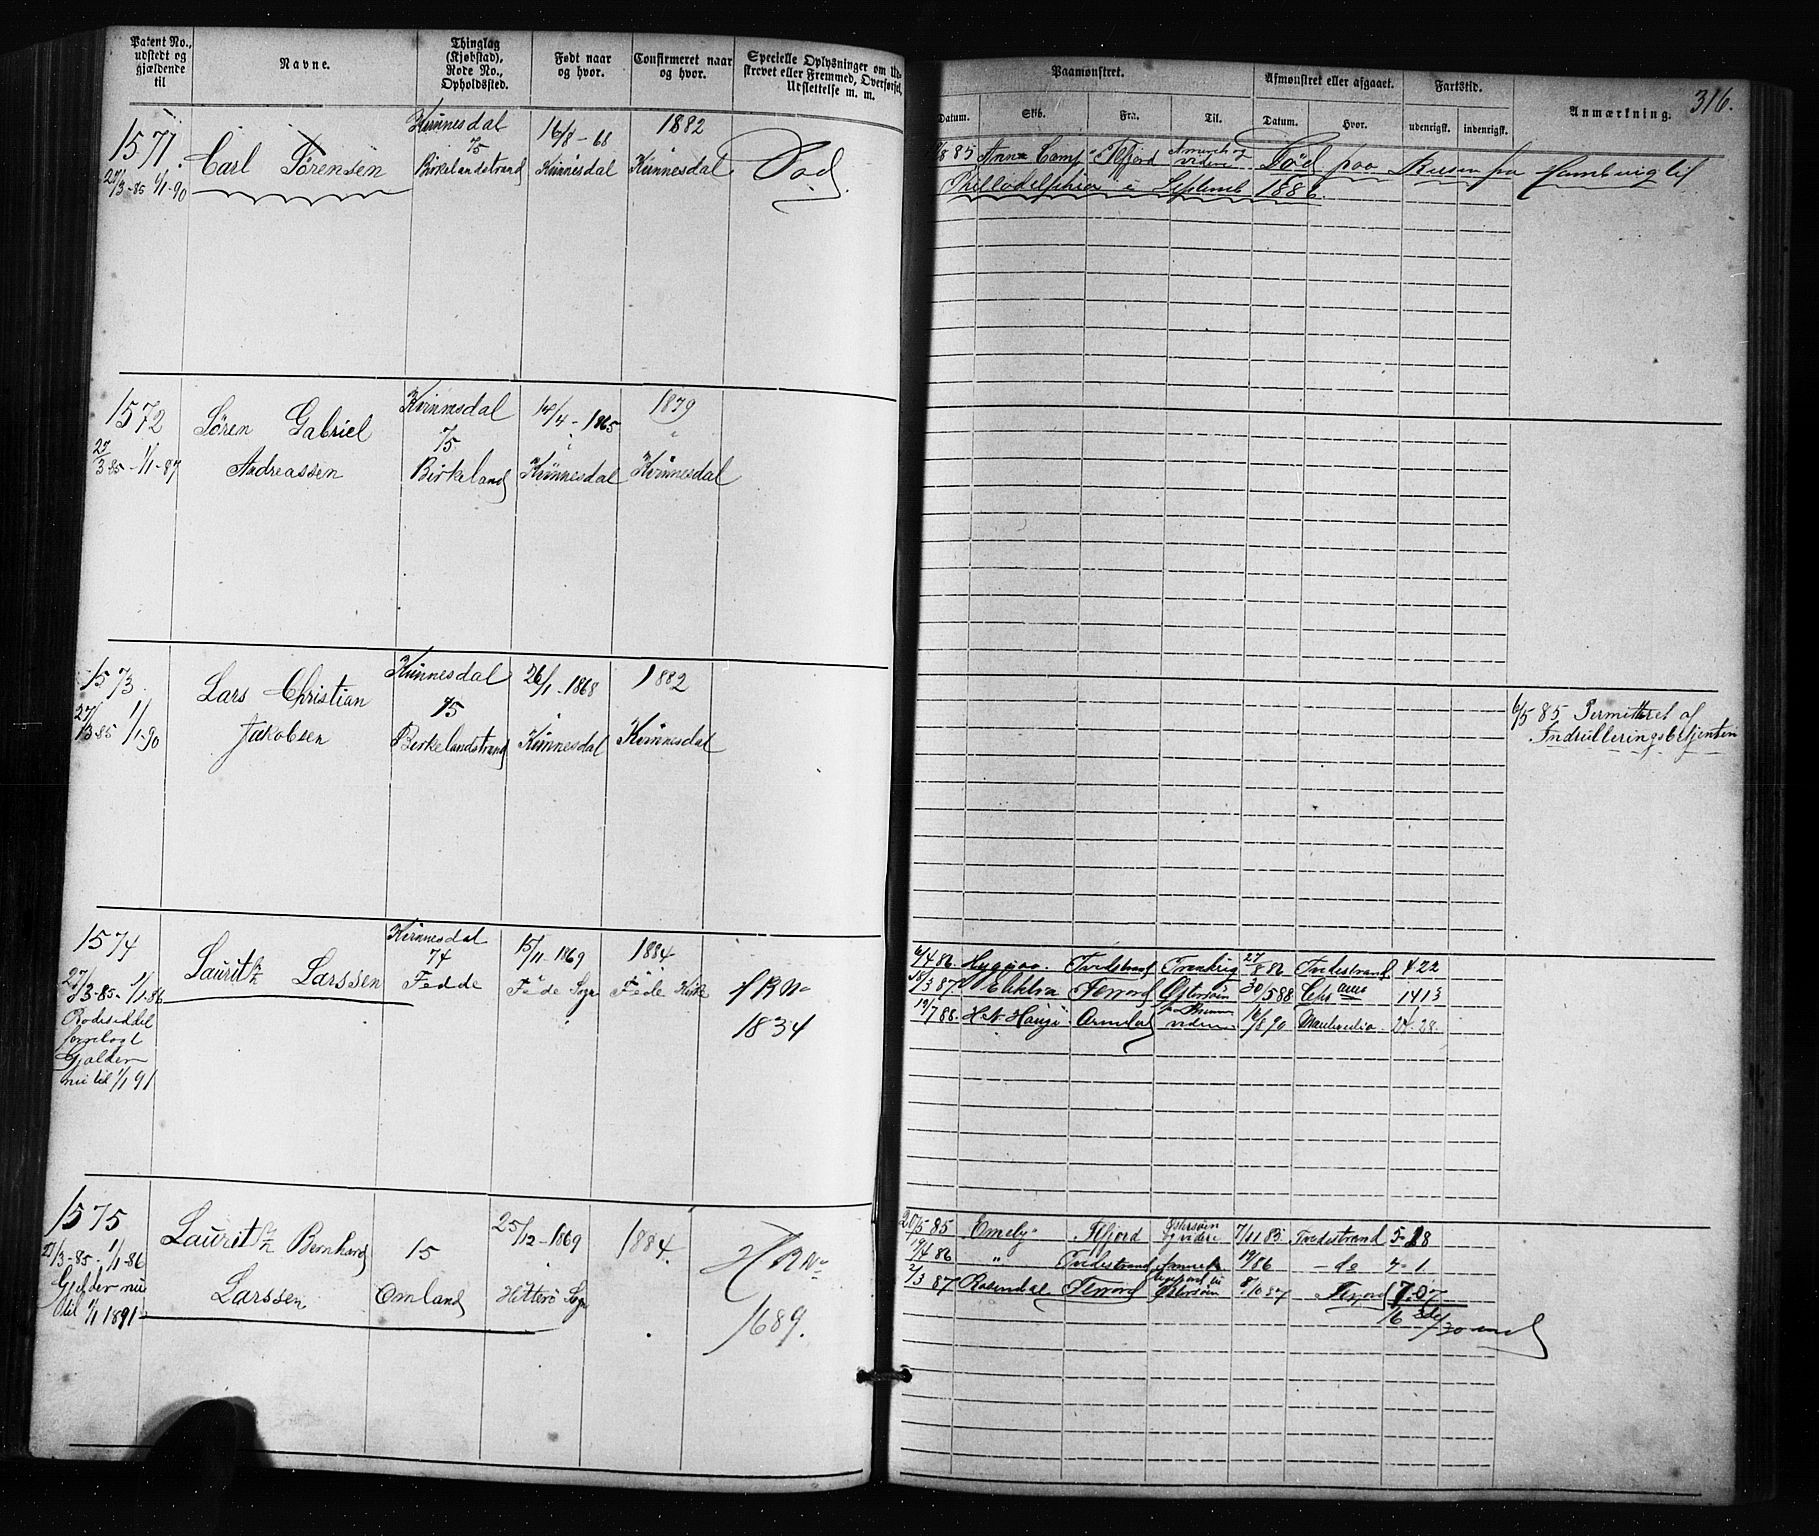 Patent No., udstedt og gjældende til
Navne.
Thinglag (Kjøbstad), Rode No., Opholdssted.
Født naar og hvor.
Confirmeret naar og hvor.
Specielle Oplysninger om Ud-
skrevet eller Fremmed, Overførsel,
Udslettelse m. m.
Paamønstret.
Afmønstret eller afgaaet.
Fartstid.
Anmærkning.
316.
Datum.
Skib.
Fra.
Til.
Datum.
Hvor.
udenrigsk.
indenrigsk.
1571.
27/3-85 1/1-90
Carl Sørensen
Kvinnesdal
75
Birkelandstrand
16/8-68
Kvinnesdal
1882
Kvinnesdal
Død
85 Anna Camp Flfjord Amerika og videre Død paa Reisen fra Hamburg til
Philladelphia i Septemb 1886.
1572
27/3 85-1/1-87
Søren Gabriel
Andreassen
Kvinnesdal
75
Birkeland
14/4-1865
Kvinnesdal
1879
Kvinnesdal
1573
27/3 85 1/1-90
Lars Christian
Jakobsen
Kvinnesdal
75
Birkelandstrand
26/1-1868
Kvinnesdal
1882
Kvinnesdal
6/5 85 Permitteret af
Indrulleringsbetjenten
1574
27/3-85-1/1-86
Rodeseddel
forelagt
Gjælder
nu til 1/1 91
Lauritz Larssen
Kvinnesdal
74
Fedde
15/11 1869
Fede Sogn
1884
Fede Kirke
HR No
1834
6/4 86. Tvedestrand Frankrig 27/8 86 Tvedestrand 4 22
18/3 87. Elektra Østersøen 30/5 88 1413
19/7 88. H. N. Hauge Arendal videre 16/8 90 24-28.
1575
27/3-85-1/1-86
Gjælder nu
til 1/1 1891
Lauritz Bernhard
Larssen
15
Omland
25/12-1869
Hitterø Sogn
1884.
HR No
1689.
20/5-85 Emely Flfjord Østersøen og videre 7/11 85 Tvedestrand 5-18
19/4 86 " Tvedestrand 86 -do 7-1
2/3 87 Rosendal Østersøen 8/10 87 7.07